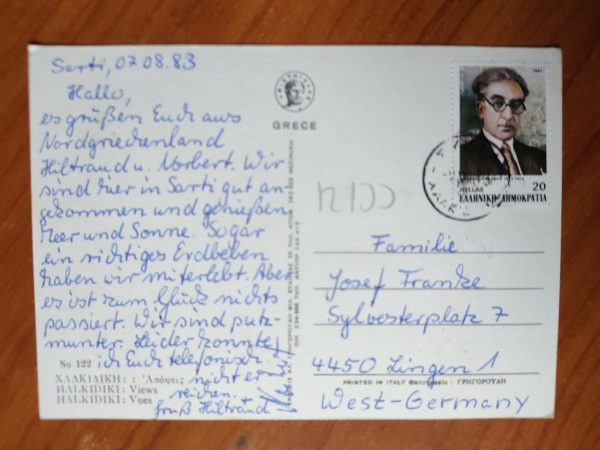 Sarti, 07.08.83
Hallo,
es grüßen Euch aus
Nordgriechenland
Hiltrud u. Norbert. Wir
sind hier in Sarti gut an-
gekommen und genießen
Meer und Sonne. Sogar
ein richtiges Erdbeben
haben wir miterlebt. Aber
es ist zum Glück nichts
passiert. Wir sind putz-
munter. Leider konnte
ich Euch telefonisch
nicht er-
reichen.
Gruß Hiltrud
No 122
ΧΑΛΚΙΔΙΚΗ: : Ἀπόψεις
HALKIDIKI: Views
HALKIDIKI: Vues
GRECE
HELLAS
20
ΕΛΛΗΝΙΚΗ ΔΗΜΟΚΡΑΤΙΑ
Familie
Josef Franke
Sylvesterplatz 7
4450 Lingen 1
PRINTED IN ITALY ΓΡΗΓΟΡΟΥΔΗ
West-Germany